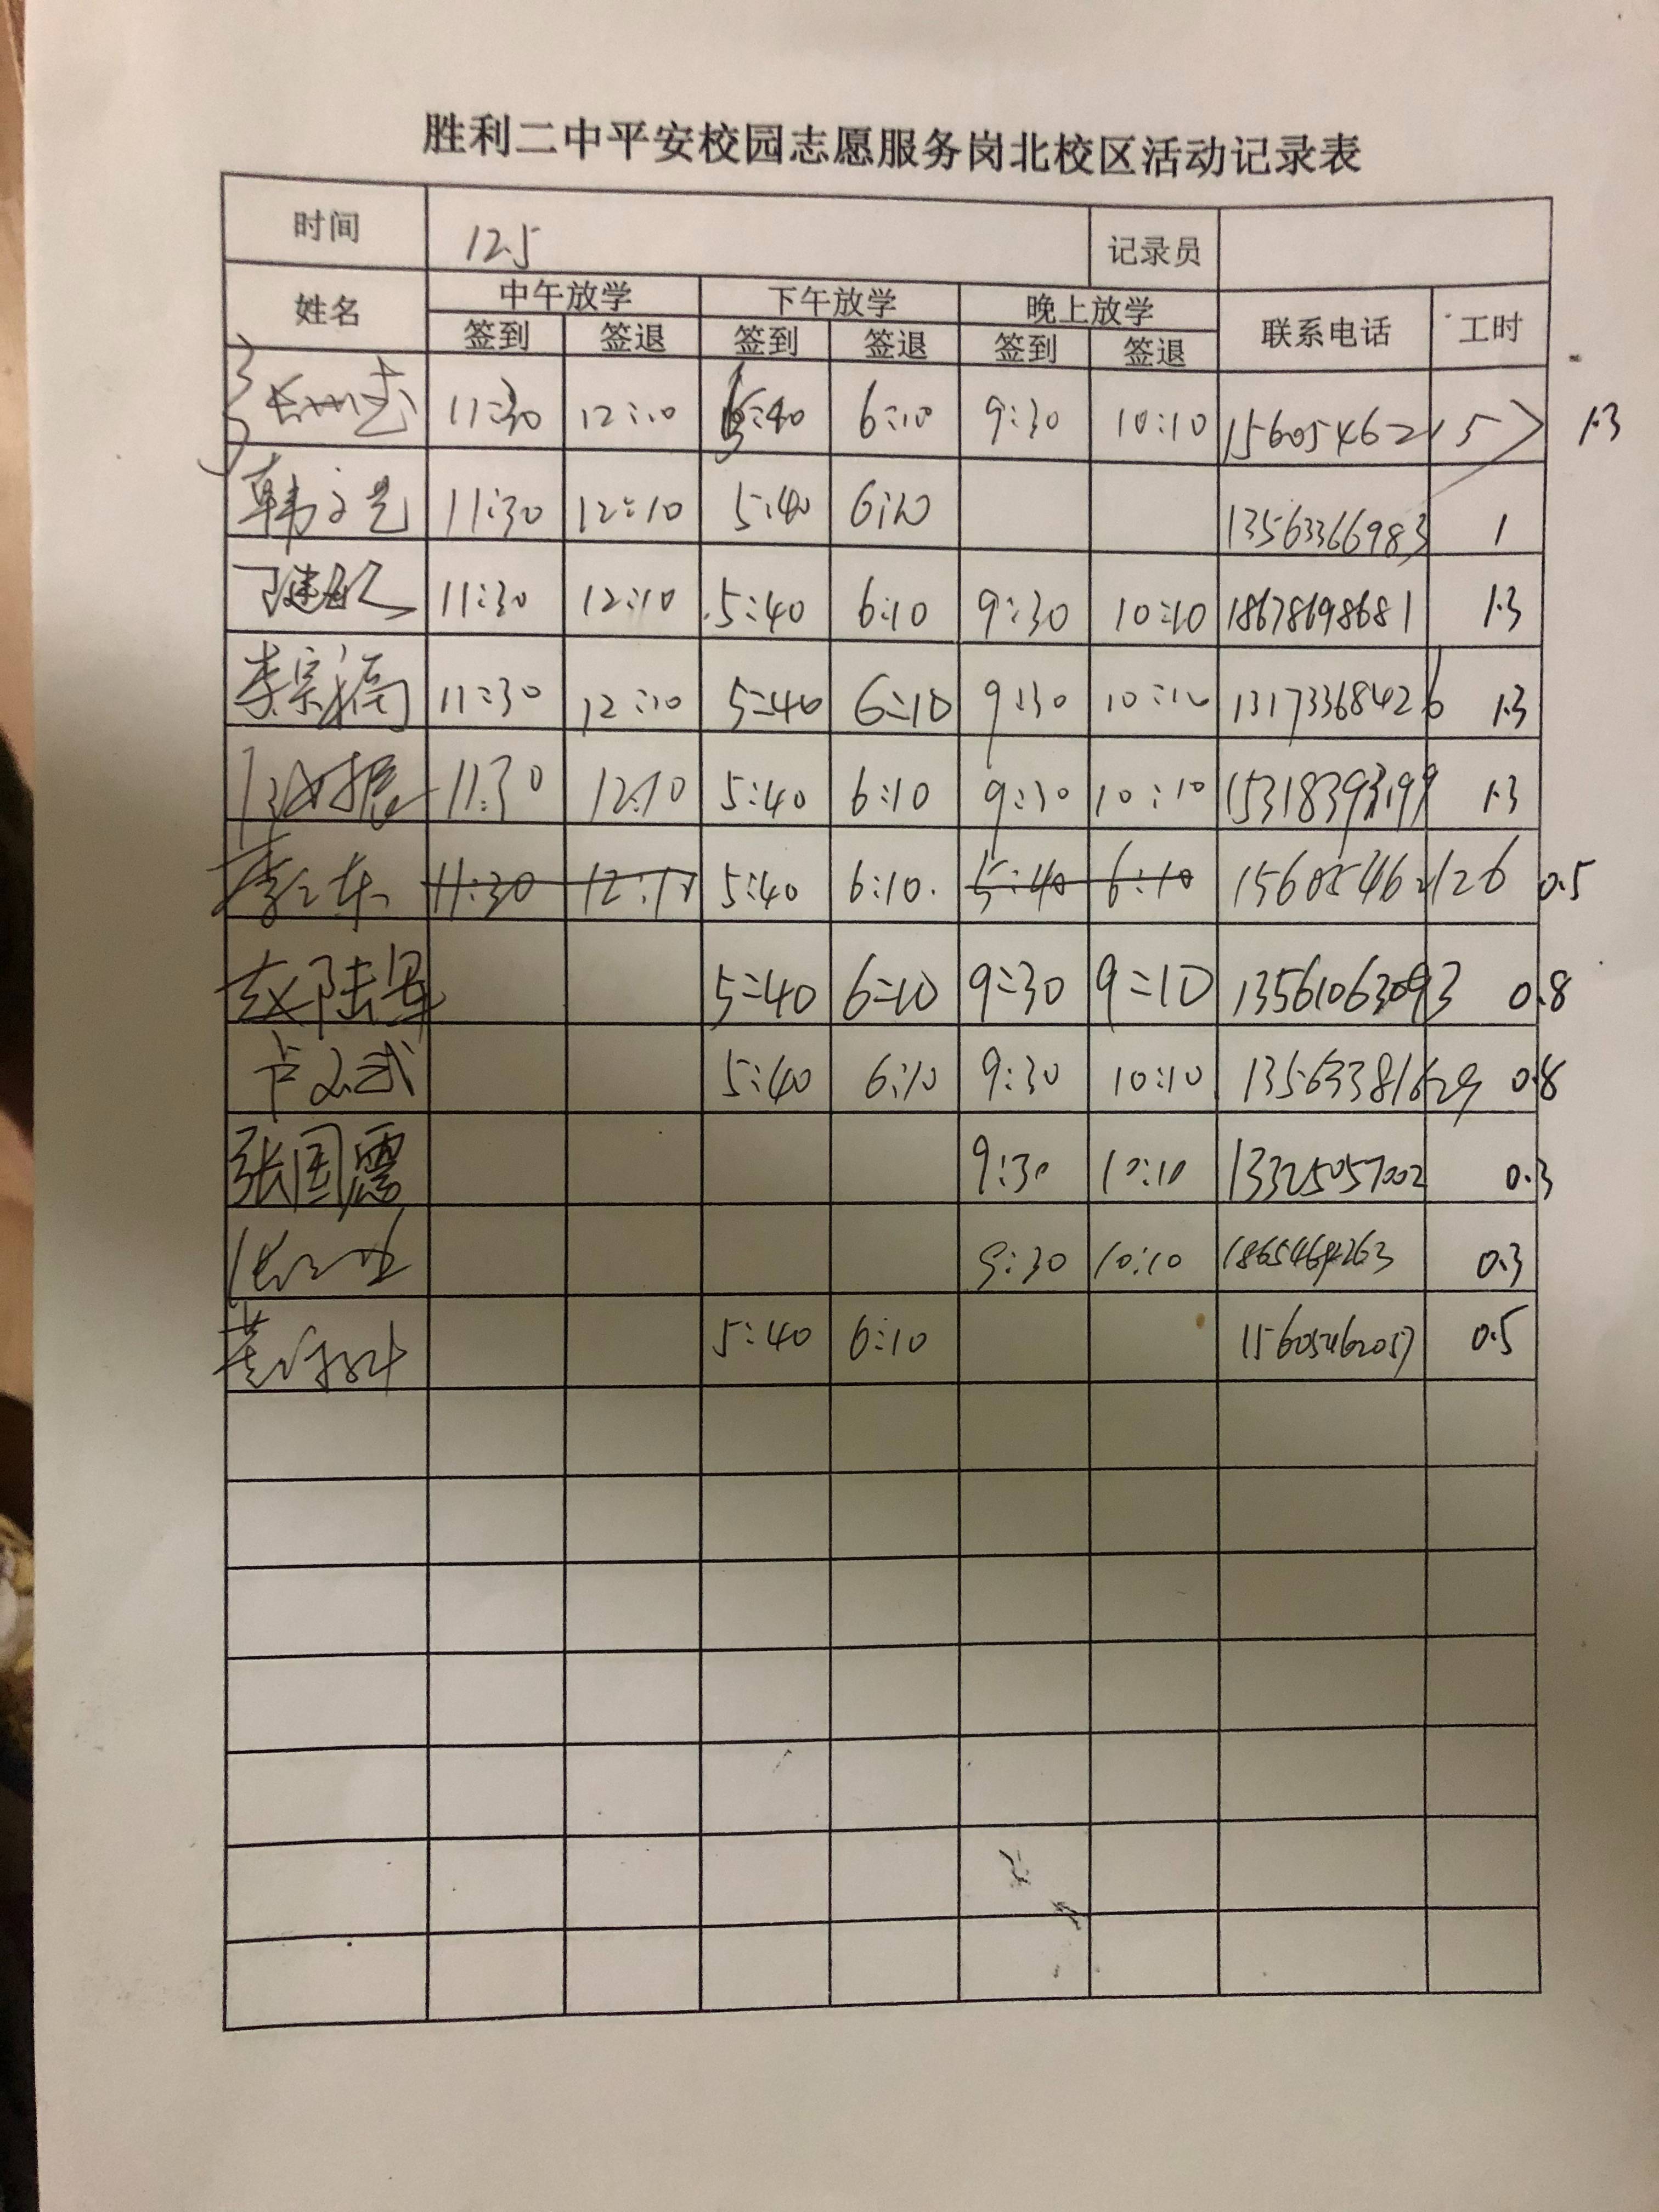 胜利二中平安校园志愿服务岗北校区活动记录表
时间 12.5 记录员
姓名 中午放学 下午放学 晚上放学 联系电话 工时
签到 签退 签到 签退 签到 签退
11:30 12:10 5:40 6:10 9:30 10:10 1.3
韩 11:30 12:10 5:40 6:10 13563366983 1
11:30 12:10 5:40 6:10 9:30 10:10 18678698681 1.3
李宗福 11:30 12:10 5:40 6:10 9:30 10:10 13173368426 1.3
11:30 12:10 5:40 6:10 9:30 10:10 1.3
李 东 11:30 12:10 5:40 6:10 5:40 6:10 15605462126 0.5
赵陆军 5:40 6:10 9:30 9:10 13561063093 0.8
卢 武 5:40 6:10 9:30 10:10 13563381629 0.8
张国震 9:30 10:10 13325057002 0.3
9:30 10:10 0.3
5:40 6:10 15605462057 0.5